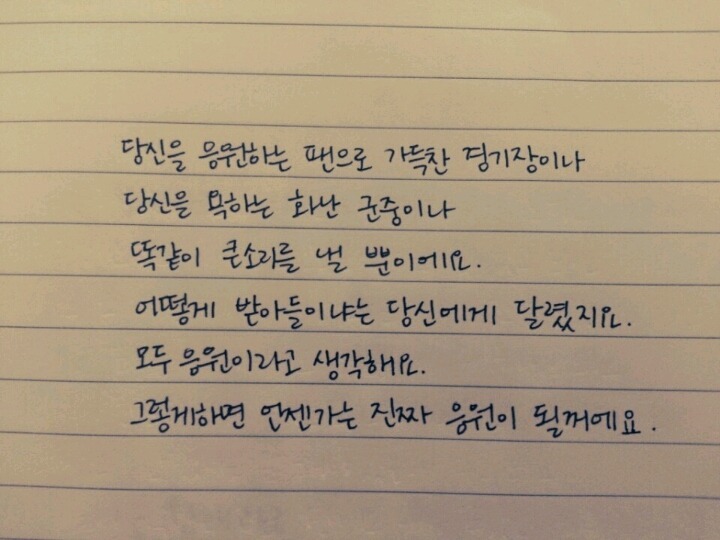 당신을 응원하는 팬으로 가득찬 경기장이나
당신을 욕하는 화난 군중이나
똑같이 큰소리를 낼 뿐이에요.
어떻게 받아들이냐는 당신에게 달렸지요.
모두 응원이라고 생각해요.
그렇게하면 언젠가는 진짜 응원이 될꺼에요.